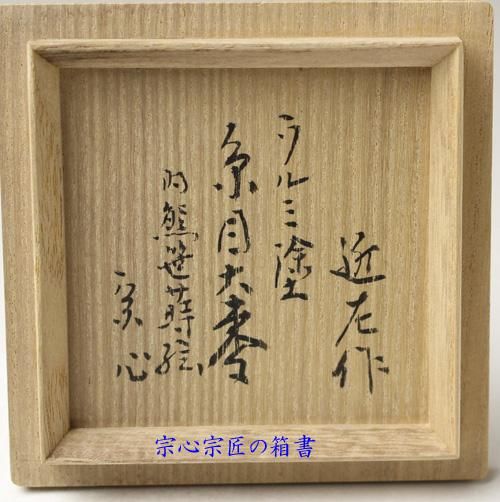 近左作
ウルミ塗
糸目大棗
内熊笹蒔絵
宗心
宗心宗匠の箱書